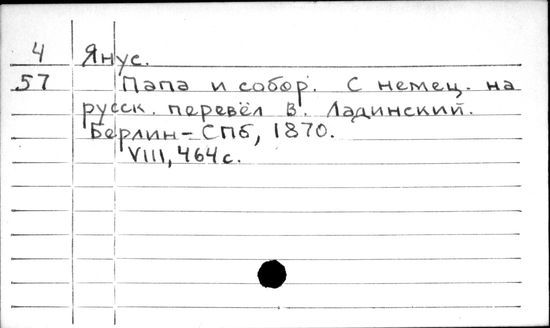 4 Янус.
57 Папа и собор. С немец. на
русск. перевёл В. Ладинский.
Берлин-СПб, 1870.
VIII, 464 с.